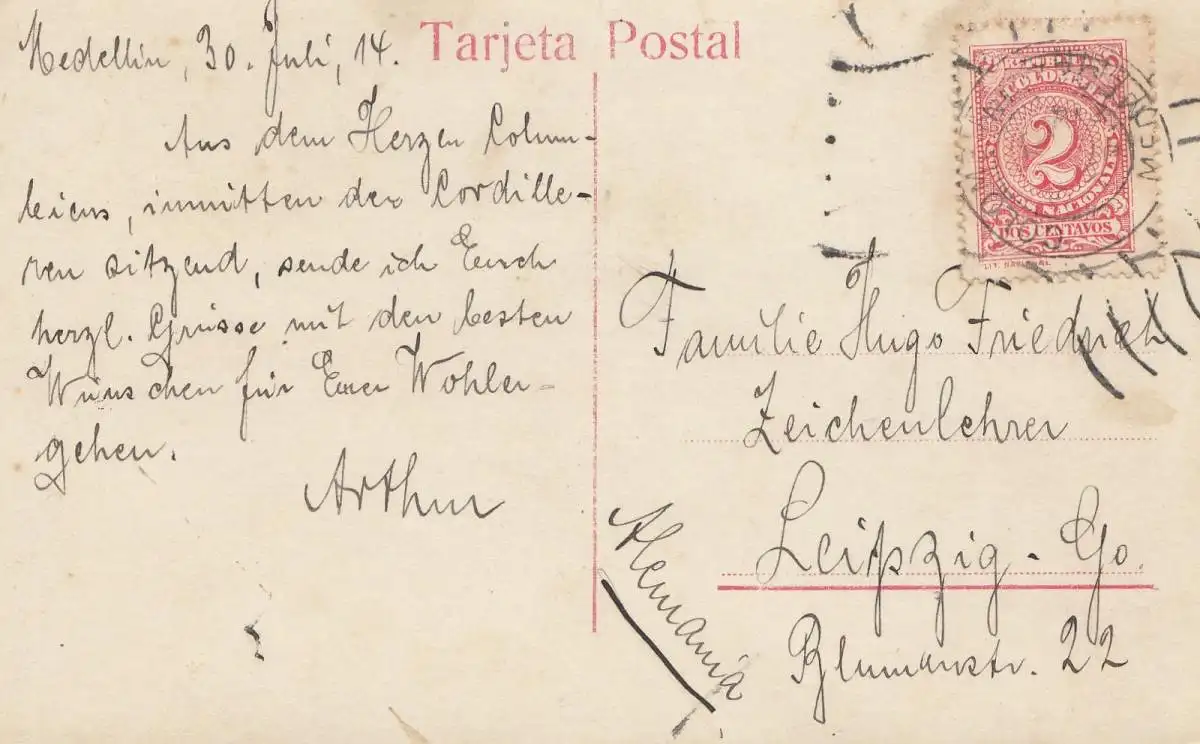 Tarjeta Postal
Medellin, 30. Juli, 14.
Aus dem Herzen Colum-
biens, inmitten der Cordille-
ren sitzend, sende ich Euch
herzl. Grüsse mit den besten
Wünschen für Euer Wohler-
gehen.
Arthur
2
DOS CENTAVOS
LIT. NACIONAL
Familie Hugo Friedrich
Zeichenlehrer
Leipzig - Go.
Blumenstr. 22
Alemania